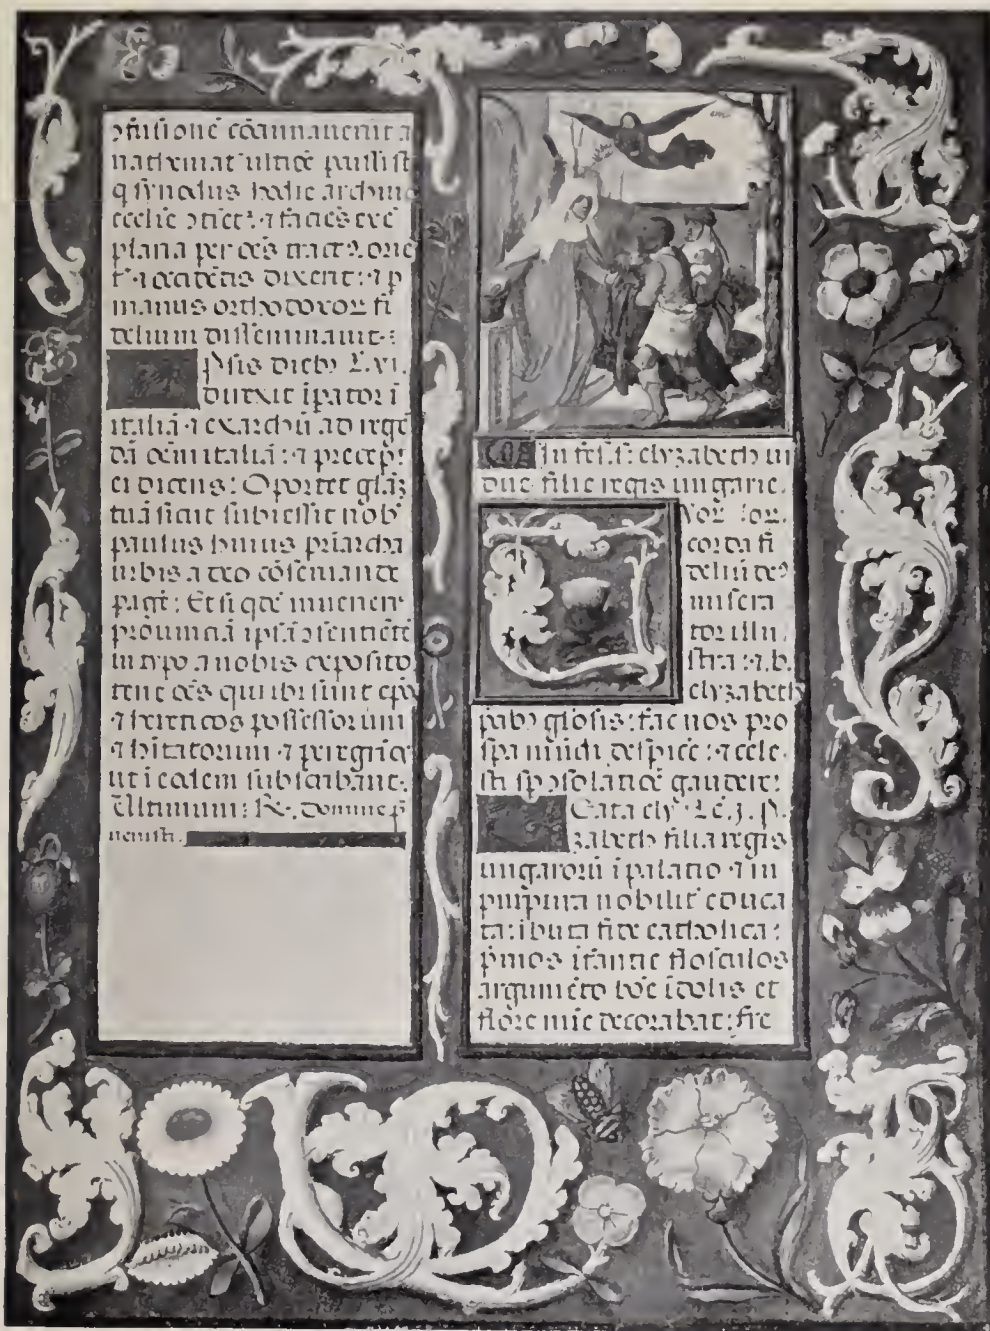 ↄfusionē cōanmauerūt a
nathimat ultiōe paulū st
q synodus hodie archiuo
ecclīe ↄtiet : ⁊ facies exē
plaria per oēs tract orie
t ⁊ occidētis dixerit : ⁊ p
manus orthodoxoꝝ fi
delium disseminauit :
Psis dieb L. vi.
Durxit īpator ī
italiā ⁊ exarchū ad rege
dā oēm italiā : ⁊ precep
ei dicens : Oportet glāꝫ
tuā sicut subiessit nob
paulus huius priarcha
urbis a deo cōseruande
pagē : Et si qdē inuenerꝭ
prouinciā ipsā ↄsentiēte
in typo a nobis exposito
tene oēs qui ibi sunt epō
⁊ hereticos possessorum
⁊ hītatorum ⁊ peregrīo
ut ī eodem subscribant.
Ultimum : R. Domine p
uenisti.
In fest s. elyzabeth ui
due filie regis ungarie.
Vor. Ior.
corda fi
deliū de
misera
tor illu
stra : ⁊ b.
elyzabeth
pab glosis : fac nos pro
spa mūdi despice : ⁊ cele
sti sp ↄsolatiōe gaudere :
Beata ely Lc. j. P.
zabeth filia regis
ungarorū ī palatio ⁊ in
purpura nobilit educa
ta : ibuta fide catholica :
p̄mos īfantie flosculos
argumēto boē īdolis et
flore mie decorabat : fre